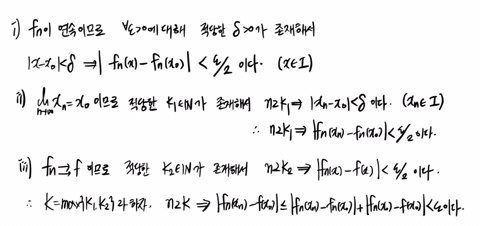 i) fn이 연속이므로 ∀ε>0에 대해 적당한 δ>0가 존재해서
|x-x₀|<δ ⇒ |fn(x)-fn(x₀)| < ε/2 이다. (x∈I)
ii) lim n→∞ xn=x₀ 이므로 적당한 K₁∈ℕ가 존재해서 n≥K₁ ⇒ |xn-x₀|<δ 이다. (xn∈I)
∴ n≥K₁ ⇒ |fn(xn)-fn(x₀)|<ε/2.
iii) fn⇉f 이므로 적당한 K₂∈ℕ가 존재해서 n≥K₂ ⇒ |fn(x)-f(x)| < ε/2 이다.
∴ K=max{K₁,K₂}라 하자. n≥K ⇒ |fn(xn)-f(x₀)| ≤ |fn(xn)-fn(x₀)|+|fn(x₀)-f(x₀)|<ε이다.